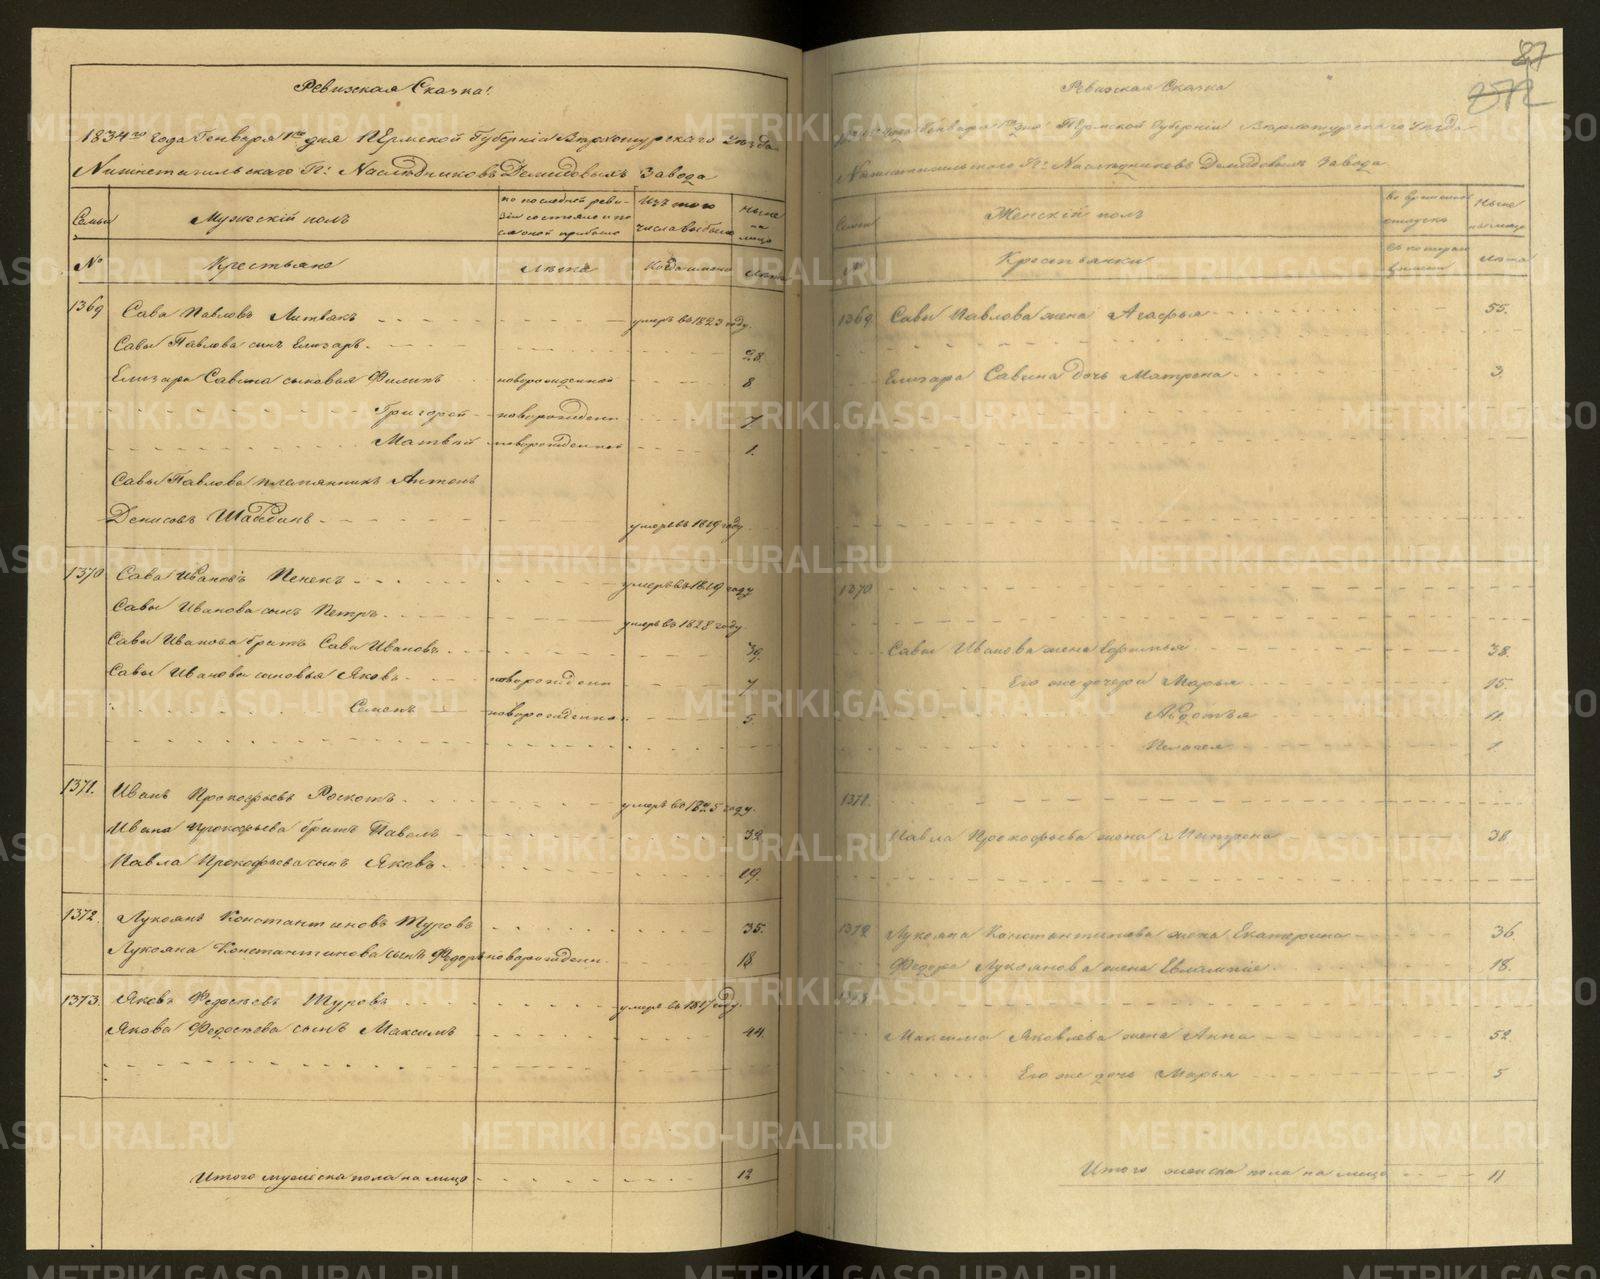 Ревизская Сказка!
1834го года Генваря 1го дня Пермской Губернiи Верхотурскаго Уезда
Нижнетагильскаго Гг: Наследниковъ Демидовыхъ Завода
Семьи
Мужескiй полъ
по последней реви-
зiи состояло и по
сле оной прибыло
Изъ того
числа выбыло
Ныне
на
лицо
№
Крестьяне
Лета
Когда именно
Лета
1369 Сава Павловъ Литвакъ умеръ въ 1823 году.
Савы Павлова сынъ Елизаръ 28.
Елизара Савина сыновья Филипъ новорожденной 8
Григорей новорожденн 7
Матвей новорожденной 1.
Савы Павлова племянникъ Антонъ
Денисовъ умеръ въ 1819 году.
1370 Сава Ивановъ Пенекъ умеръ въ 1819 году
Савы Иванова сынъ Петръ умеръ въ 1828 году
Савы Иванова братъ Сава Ивановъ 39.
Савы Иванова сыновья Яковъ новорожденн 7
Семенъ новорожденно. 5.
1371. Иванъ Прокофьевъ Роскотъ умеръ въ 1825 году.
Ивана Прокофьева братъ Павелъ 39.
Павла Прокофьева сынъ Яковъ 19.
1372. Лукоянъ Константиновъ Туровъ 35.
Лукояна Константинова сынъ Федоръ новорожденн. 18
1373. Яковъ Федосеевъ Туровъ умеръ въ 1817 году.
Якова Федосеева сынъ Максимъ 44.
Итого мужеска пола на лицо 12
87
272
Ревизская Сказка
Генваря 1го дня Пермской Губернiи Верхотурскаго Уезда
Нижнетагильскаго Гг: Наследниковъ Демидовыхъ Завода
Семьи
Женскiй полъ
Во временной
отлучке
Ныне
на лицо
№
Крестьянки
Съ котораго
времени
Лета
1369 Савы Павлова жена Агафья 55.
Елизара Савина дочь Матрена 3.
1370
Савы Иванова жена Ефимья 38.
Его же дочери Марья 15.
Авдотья 11.
Пелагея 1
1371.
Павла Прокофьева жена 38.
1372 Лукояна Константинова жена Екатерина 36
Федора Лукоянова жена Евлампiя 18.
1373
Максима Яковлева жена Анна 52.
Его же дочь Марья 5
Итого женска пола на лицо 11
METRIKI.GASO-URAL.RU